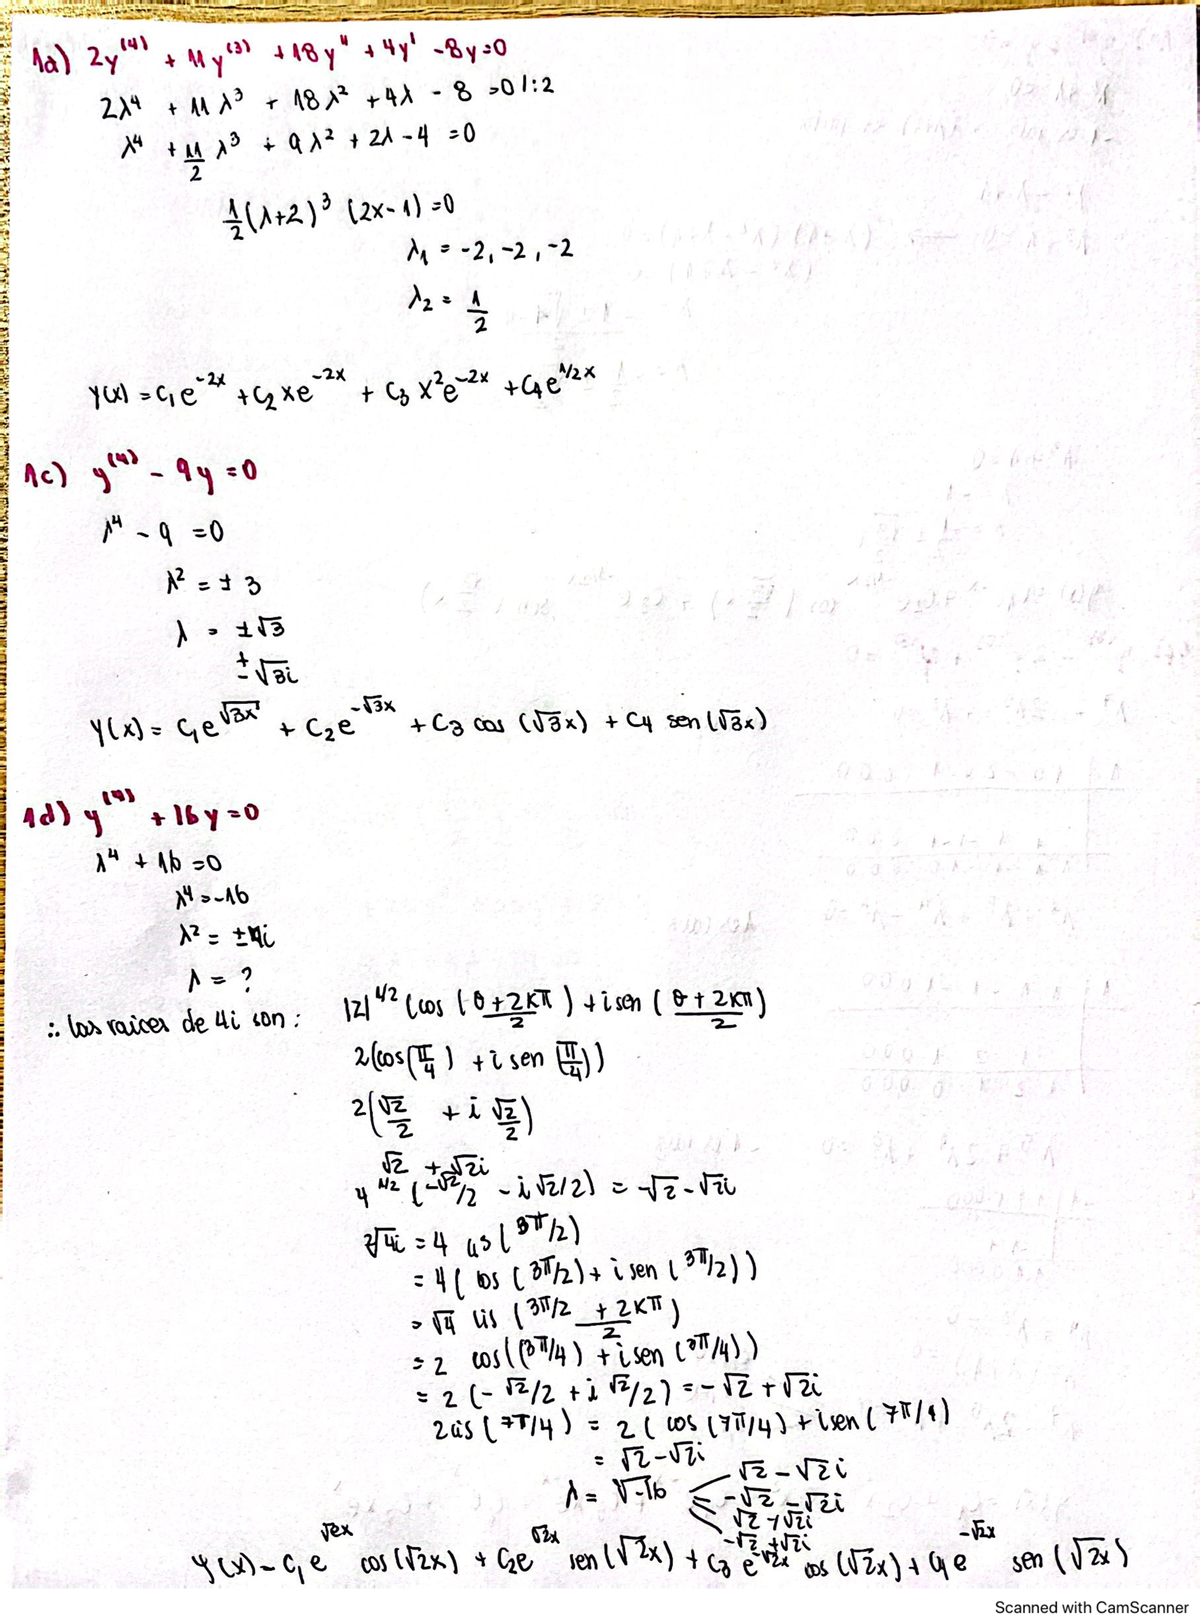 1a) 2y⁽⁴⁾ + 11y⁽³⁾ + 18y'' + 4y' - 8y = 0
2λ⁴ + 11λ³ + 18λ² + 4λ - 8 = 0 /:2
λ⁴ + 11/2 λ³ + 9λ² + 2λ - 4 = 0
1/2 (λ+2)³ (2x-1) = 0
λ₁ = -2, -2, -2
λ₂ = 1/2
y(x) = C₁e^-2x + C₂xe^-2x + C₃x²e^-2x + C₄e^1/2x
1c) y⁽⁴⁾ - 9y = 0
λ⁴ - 9 = 0
λ² = ± 3
λ = ±√3
± √3i
y(x) = C₁e^√3x + C₂e^-√3x + C₃ cos (√3x) + C₄ sen (√3x)
1d) y⁽⁴⁾ + 16y = 0
λ⁴ + 16 = 0
λ⁴ = -16
λ² = ±4i
λ = ?
∴ las raices de 4i son: |z|^1/2 (cos (θ+2kπ / 2) + i sen (θ+2kπ / 2)
2(cos(π/4) + i sen (π/4))
2(√2/2 + i √2/2)
√2 + √2i
4^1/2 (-√2/2 - i√2/2) = -√2 - √2i
²√4i = 4 cis (3π/2)
= 4 ( cos (3π/2) + i sen (3π/2))
= √4 cis (3π/2 + 2kπ / 2)
= 2 cos((3π/4) + i sen (3π/4))
= 2 (-√2/2 + i √2/2) = -√2 + √2i
2cis (7π/4) = 2 ( cos (7π/4) + i sen (7π/4)
= √2 - √2i
λ = √-16 √2 - √2i
-√2 - √2i
√2 + √2i
-√2 + √2i
y(x) = C₁e^√2x cos (√2x) + C₂e^√2x sen (√2x) + C₃e^-√2x cos (√2x) + C₄e^-√2x sen (√2x)
Scanned with CamScanner